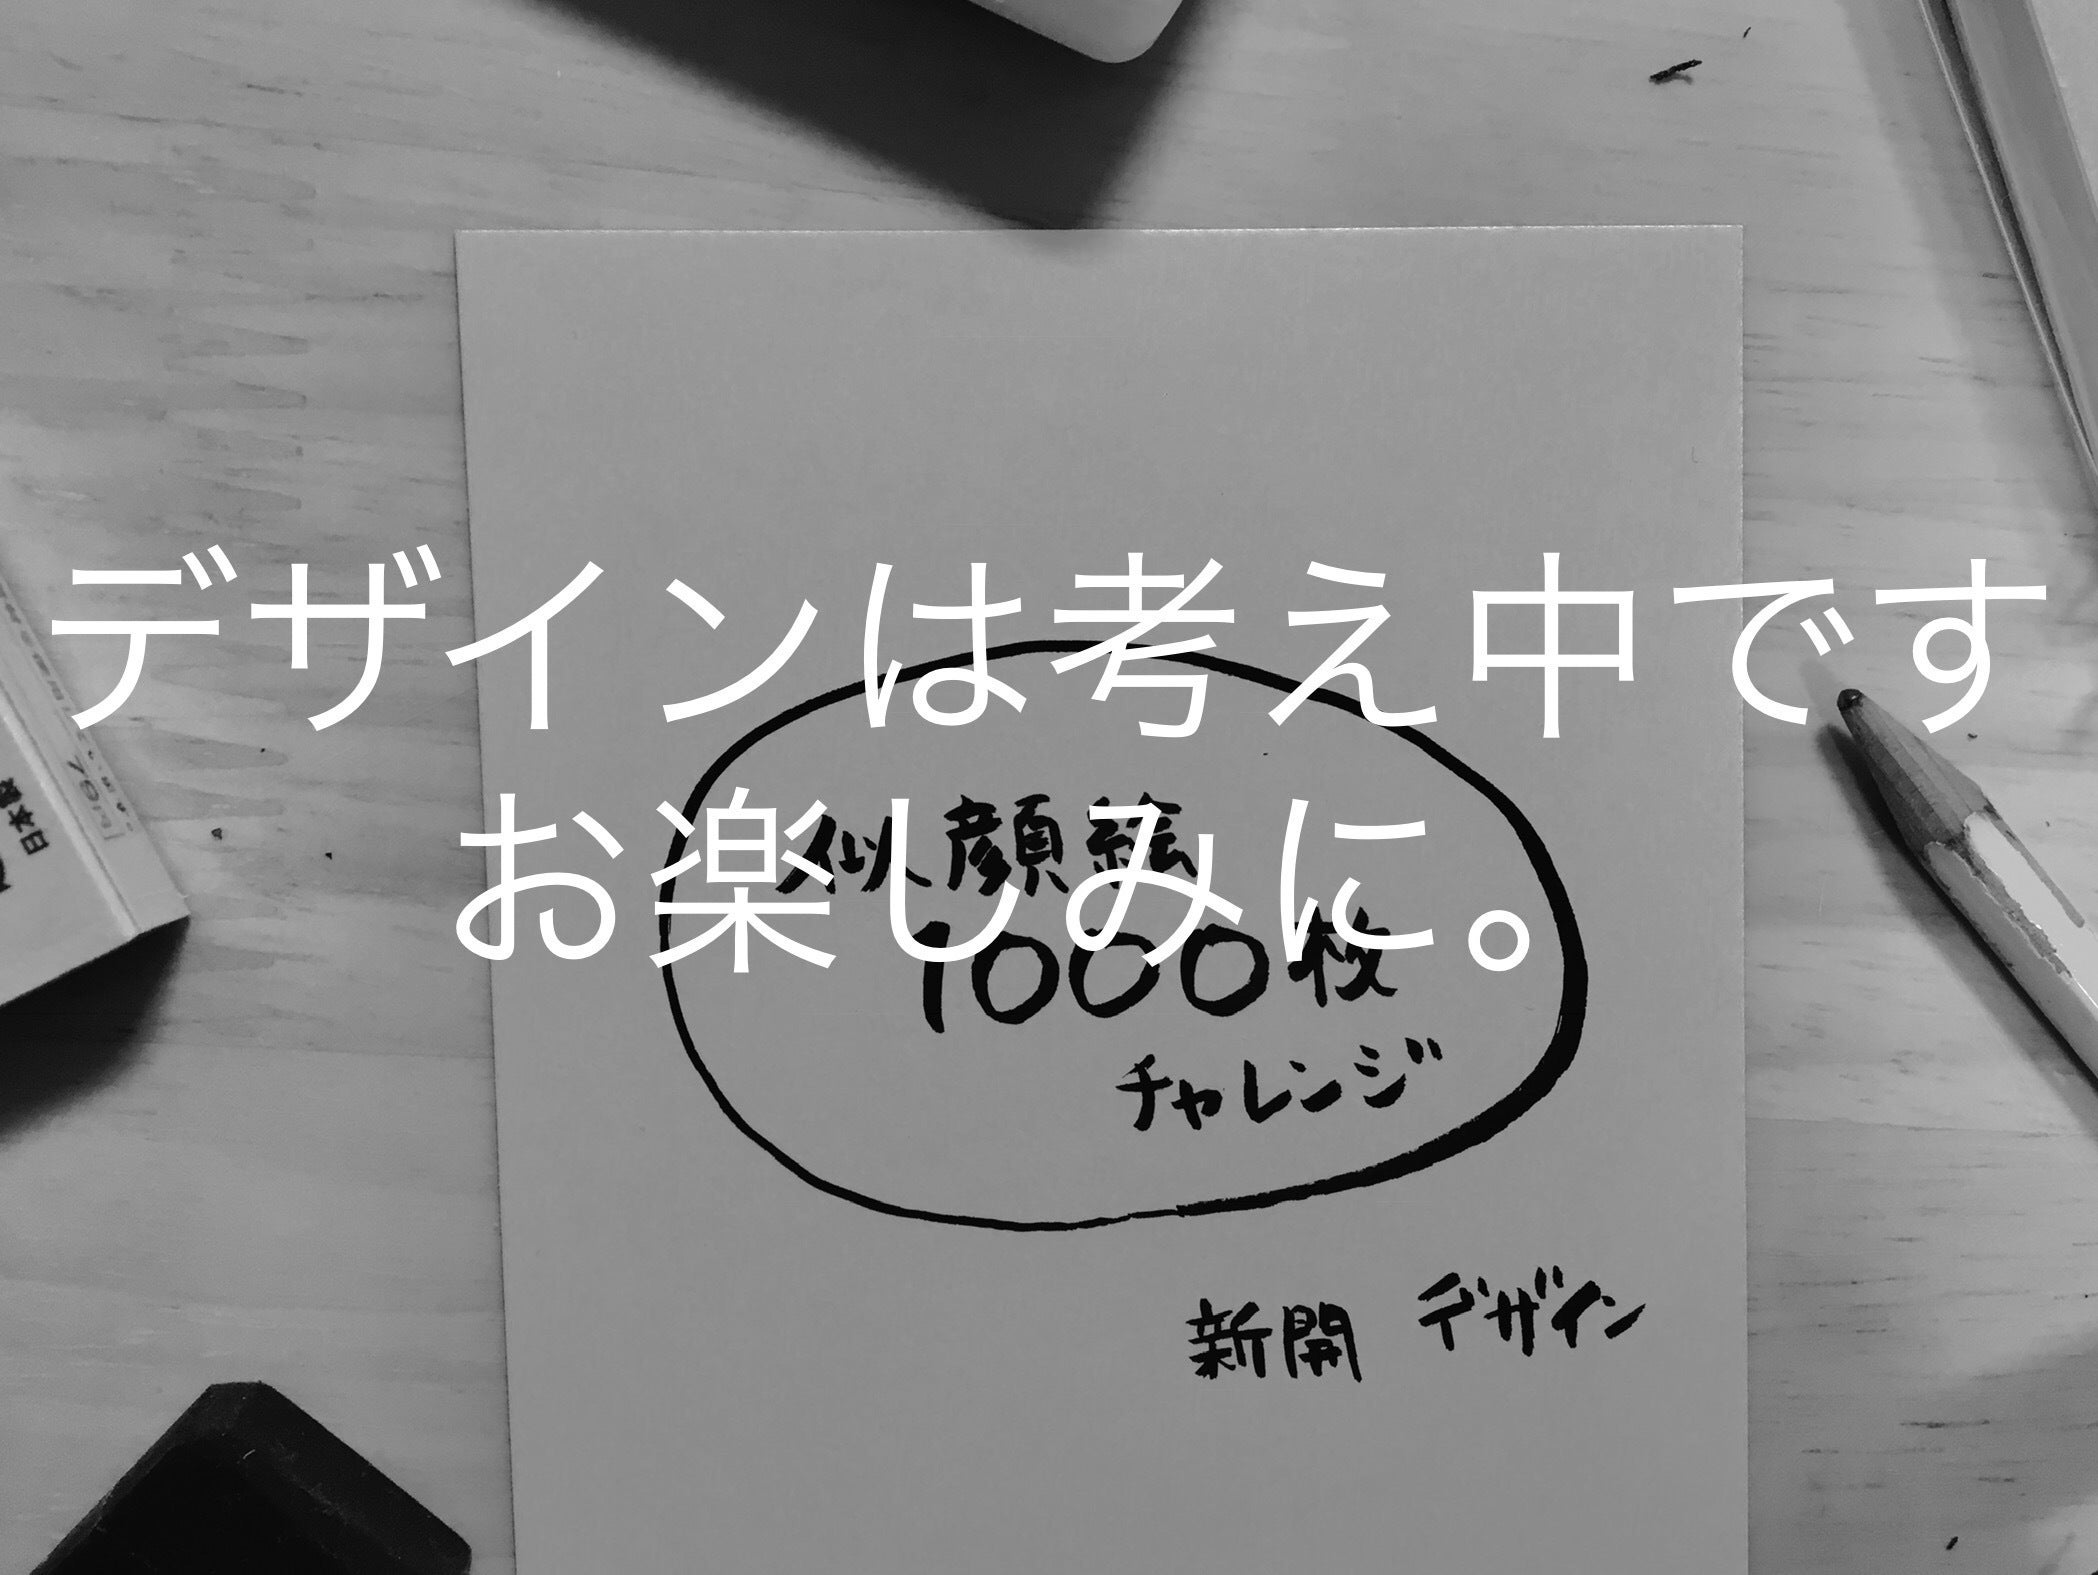 デザインは考え中です
お楽しみに。
似顔絵
1000枚
チャレンジ
新開 デザイン
日本製